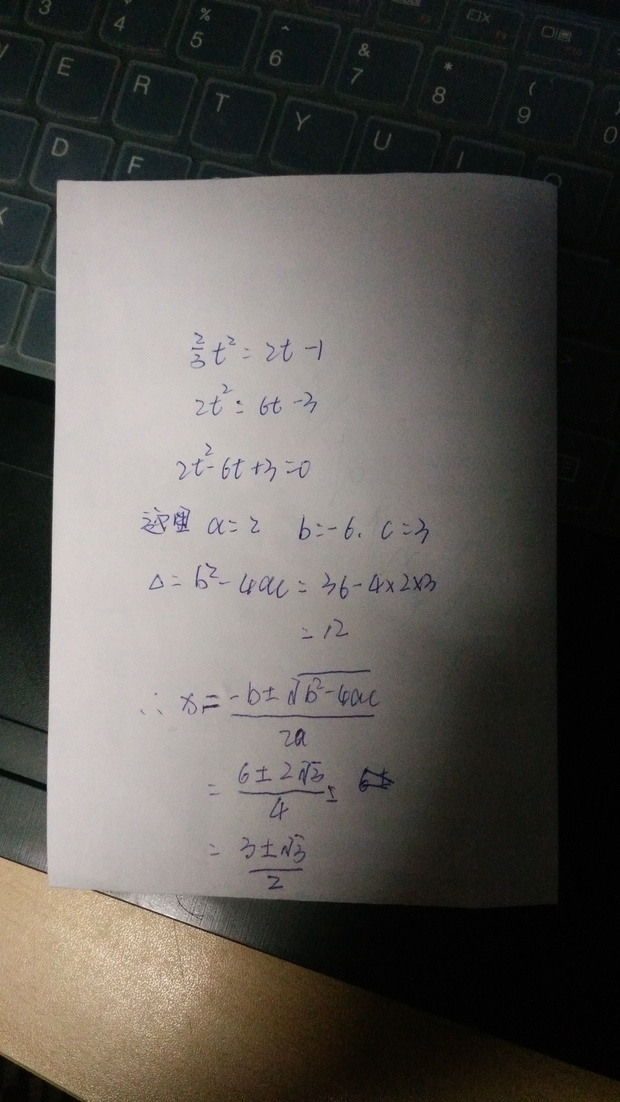 3 $ 4 % 5 ^ 6 & 7 * 8 ( 9 0
E R T Y U I
D F
2/3 t² = 2t - 1
2t² = 6t - 3
2t² - 6t + 3 = 0
这里 a = 2 b = -6. c = 3
Δ = b² - 4ac = 36 - 4×2×3
= 12
∴ x = (-b ± √(b² - 4ac)) / 2a
= (6 ± 2√3) / 4
= (3 ± √3) / 2